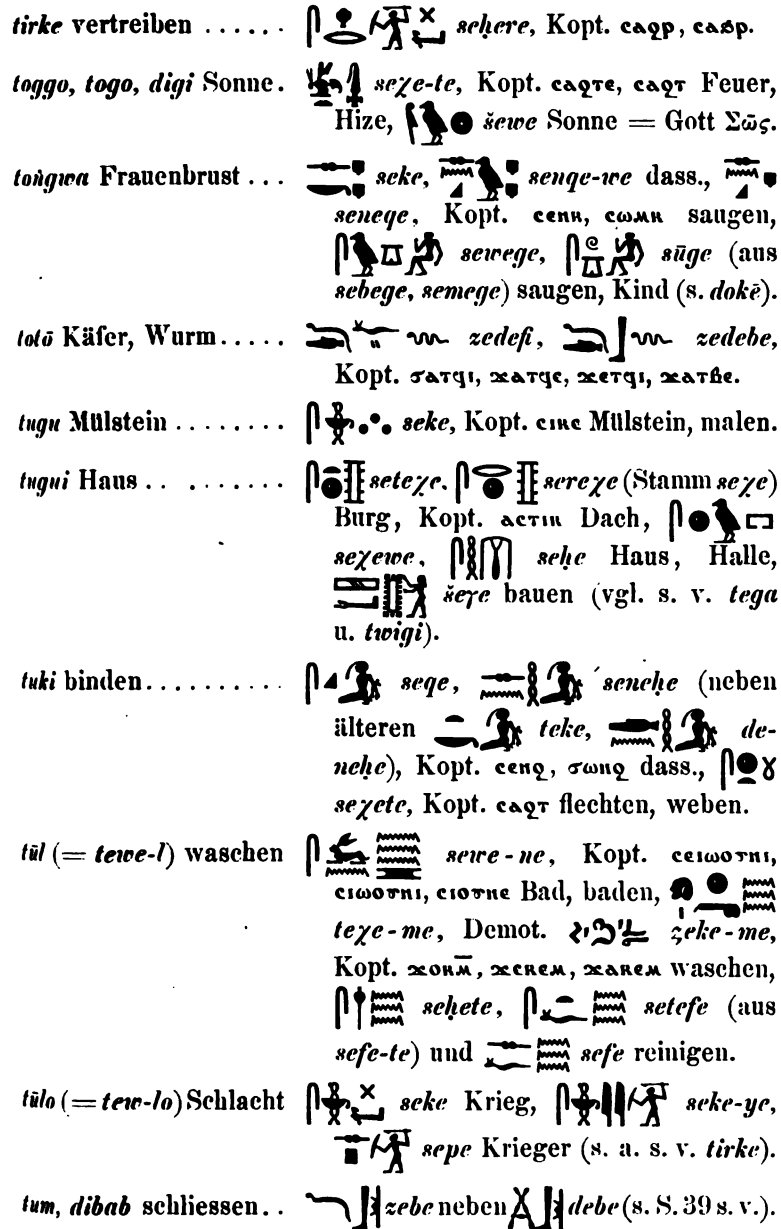 tirke vertreiben ...... seḥere, Kopt. ⲥⲁϩⲣ, ⲥⲁϧⲣ.
toggo, togo, digi Sonne. seχe-te, Kopt. ⲥⲁϩⲧⲉ, ⲥⲁϩⲧ Feuer,
Hize, šewe Sonne = Gott Σῶς.
toṅgwa Frauenbrust ... seke, senqe-we dass.,
seneqe, Kopt. ⲥⲉⲛⲕ, ⲥⲱⲙⲕ saugen,
sewege, sūge (aus
sebege, semege) saugen, Kind (s. dokē).
totō Käfer, Wurm..... zedefi, zedebe,
Kopt. ϭⲁⲧϥⲓ, ϫⲁⲧϥⲉ, ϫⲉⲧϥⲓ, ϫⲁⲧⲃⲉ.
tugu Mülstein ........ seke, Kopt. ⲥⲓⲕⲉ Mülstein, malen.
tugui Haus .. ...... seteχe, sereχe (Stamm seχe)
Burg, Kopt. ⲁⲥⲧⲓⲕ Dach,
seχewe, seḥe Haus, Halle,
šeγe bauen (vgl. s. v. tega
u. twigi).
tuki binden.......... seqe, seneḥe (neben
älteren teke, de-
neḥe), Kopt. ⲥⲉⲛϩ, ϭⲱⲛϩ dass.,
seχete, Kopt. ⲥⲁϩⲧ flechten, weben.
tūl (= tewe-l) waschen sewe-ne, Kopt. ⲥⲉⲓⲱⲟⲩⲛⲓ,
ⲥⲓⲱⲟⲩⲛⲓ, ⲥⲓⲟⲩⲛⲉ Bad, baden,
teχe-me, Demot. zeke-me,
Kopt. ϫⲟⲕⲙ̄, ϫⲉⲕⲉⲙ, ϫⲁⲕⲉⲙ waschen,
seḥete, setefe (aus
sefe-te) und sefe reinigen.
tūlo (= tew-lo) Schlacht seke Krieg, seke-ye,
sepe Krieger (s. a. s. v. tirke).
tum, dibab schliessen.. zebe neben debe (s. S. 39 s. v.).